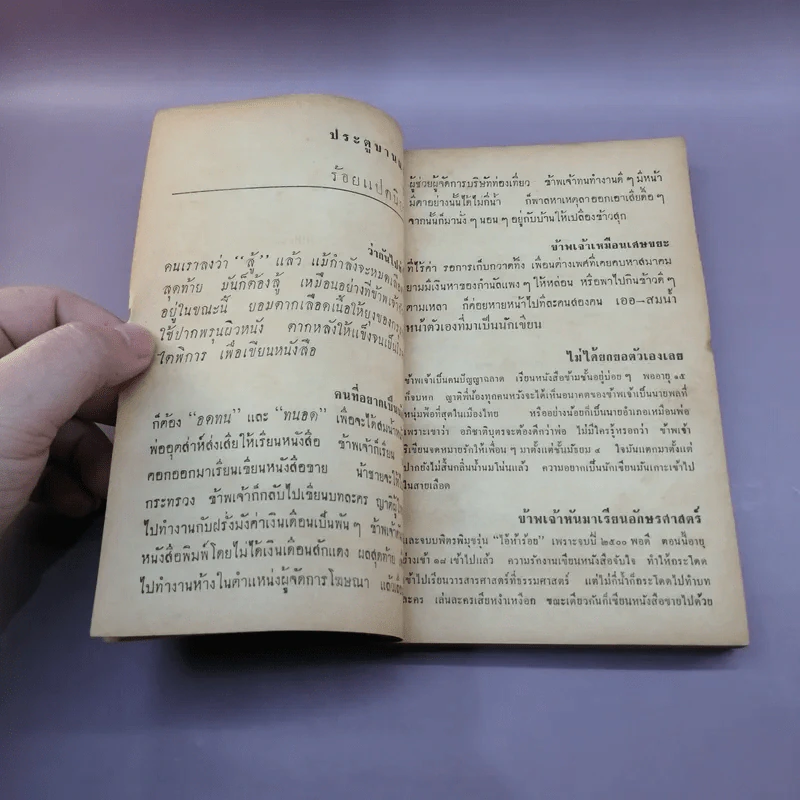 ประตูบาน
ร้อยแปด
ว่ากัน
คนเราลงว่า “สู้” แล้ว แม้กำลังจะหมด
สุดท้าย มันก็ต้องสู้ เหมือนอย่างที่ข้าพเจ้า
อยู่ในขณะนี้ ยอมตากเลือดเนื้อให้ยุงของ
ใช้ปากพรุนผิวหนัง ดากหลังให้แข็งจนเป็น
ไตพิการ เพื่อเขียนหนังสือ
คนที่อยากเป็น
ก็ต้อง “อดทน” และ “ทนอด” เพื่อจะได้สม
พ่ออุตส่าห์ส่งเสียให้เรียนหนังสือ ข้าพเจ้าก็เรียน
ดอกออกมาเรียนเขียนหนังสือขาย น้าชายจะให้
กระทรวง ข้าพเจ้าก็กลับไปเขียนบทละคร ญาติผู้
ไปทำงานกับฝรั่งมังค่าเงินเดือนเป็นพัน ๆ ข้าพเจ้า
หนังสือพิมพ์โดยไม่ได้เงินเดือนสักแดง ผลสุดท้าย
ไปทำงานห้างในตำแหน่งผู้จัดการโฆษณา แล้ว
ผู้ช่วยผู้จัดการบริษัทท่องเที่ยว ข้าพเจ้าทนทำงานดี ๆ มีหน้า
มีตาอย่างนั้นได้ไม่กี่น้ำ ก็พาลหาเหตุลาออกเอาเสียดื้อ ๆ
จากนั้นก็มานั่ง ๆ นอน ๆ อยู่กับบ้านให้เปลืองข้าวสุก
ข้าพเจ้าเหมือนเศษขยะ
ที่ไร้ค่า รอการเก็บกวาดทิ้ง เพื่อนต่างเพศที่เคยคบหาสมาคม
ยามมีเงินหาของกำนัลแพง ๆ ให้หล่อน หรือพาไปกินข้าวดี ๆ
ตามเหลา ก็ค่อยหายหน้าไปทีละคนสองคน เออ–สมน้ำ
หน้าตัวเองที่มาเป็นนักเขียน
ไม่ได้ยกยอตัวเองเลย
ข้าพเจ้าเป็นคนปัญญาฉลาด เรียนหนังสือข้ามชั้นอยู่บ่อย ๆ พออายุ ๑๕
ก็จบหก ญาติพี่น้องทุกคนหวังจะได้เห็นอนาคตของข้าพเจ้าเป็นนายพลที่
หนุ่มฟ้อที่สุดในเมืองไทย หรืออย่างน้อยก็เป็นนายอำเภอเหมือนพ่อ
เพราะเขาว่า อภิชาตบุตรจะต้องดีกว่าพ่อ ไม่มีใครรู้หรอกว่า ข้าพเจ้า
ริเขียนจดหมายรักให้เพื่อน ๆ มาตั้งแต่ชั้นมัธยม ๔ ใจมันแตกมาตั้งแต่
ปากยังไม่สิ้นกลิ่นน้ำนมโน่นแล้ว ความอยากเป็นนักเขียนมันเกาะเข้าไป
ในสายเลือด
ข้าพเจ้าหันมาเรียนอักษรศาสตร์
และจบบพิตรพิมุขรุ่น “ไอ้ห้าร้อย” เพราะจบปี ๒๕๐๐ พอดี ตอนนี้อายุ
ย่างเข้า ๑๘ เข้าไปแล้ว ความรักงานเขียนหนังสือจับใจ ทำให้กระโดด
เข้าไปเรียนวารสารศาสตร์ที่ธรรมศาสตร์ แต่ไม่กี่น้ำก็กระโดดไปทำบท
ละคร เล่นละครเสียหงำเหงือก ขณะเดียวกันก็เขียนหนังสือขายไปด้วย